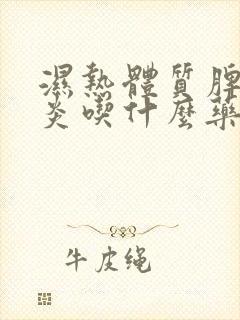 濕熱體質脾
炎喫什麼藥
牛皮绳